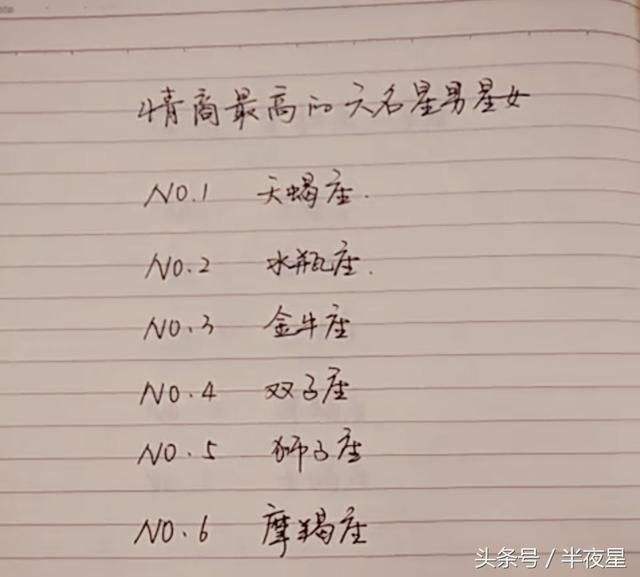 情商最高的六名星男星女
NO.1 天蝎座.
NO.2 水瓶座.
NO.3 金牛座
NO.4 双子座
NO.5 狮子座
NO.6 摩羯座
头条号/半夜星